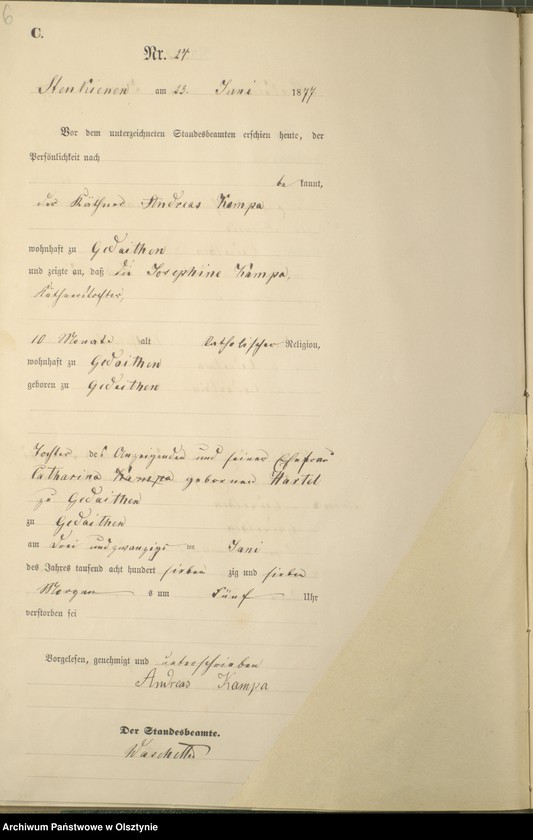 6
C.
Nr. 24.
Stenkienen am 23. Juni 1877
Vor dem unterzeichneten Standesbeamten erschien heute, der
Persönlichkeit nach
be kannt,
der Käthner Andreas Kampa
wohnhaft zu Gedaithen
und zeigte an, daß die Josephine Kampa,
Käthnerstochter,
10 Monate alt katholischer Religion,
wohnhaft zu Gedaithen
geboren zu Gedaithen
Tochter des Anzeigenden und seiner Ehefrau
Catharina Kampa gebornen Hartel
zu Gedaithen
zu Gedaithen
am Drei und zwanzigs ten Juni
des Jahres tausend acht hundert sieben zig und sieben
Morgen s um Fünf Uhr
verstorben sei
Vorgelesen, genehmigt und unterschrieben
Andreas Kampa
Der Standesbeamte.
Archiwum Państwowe w Olsztynie